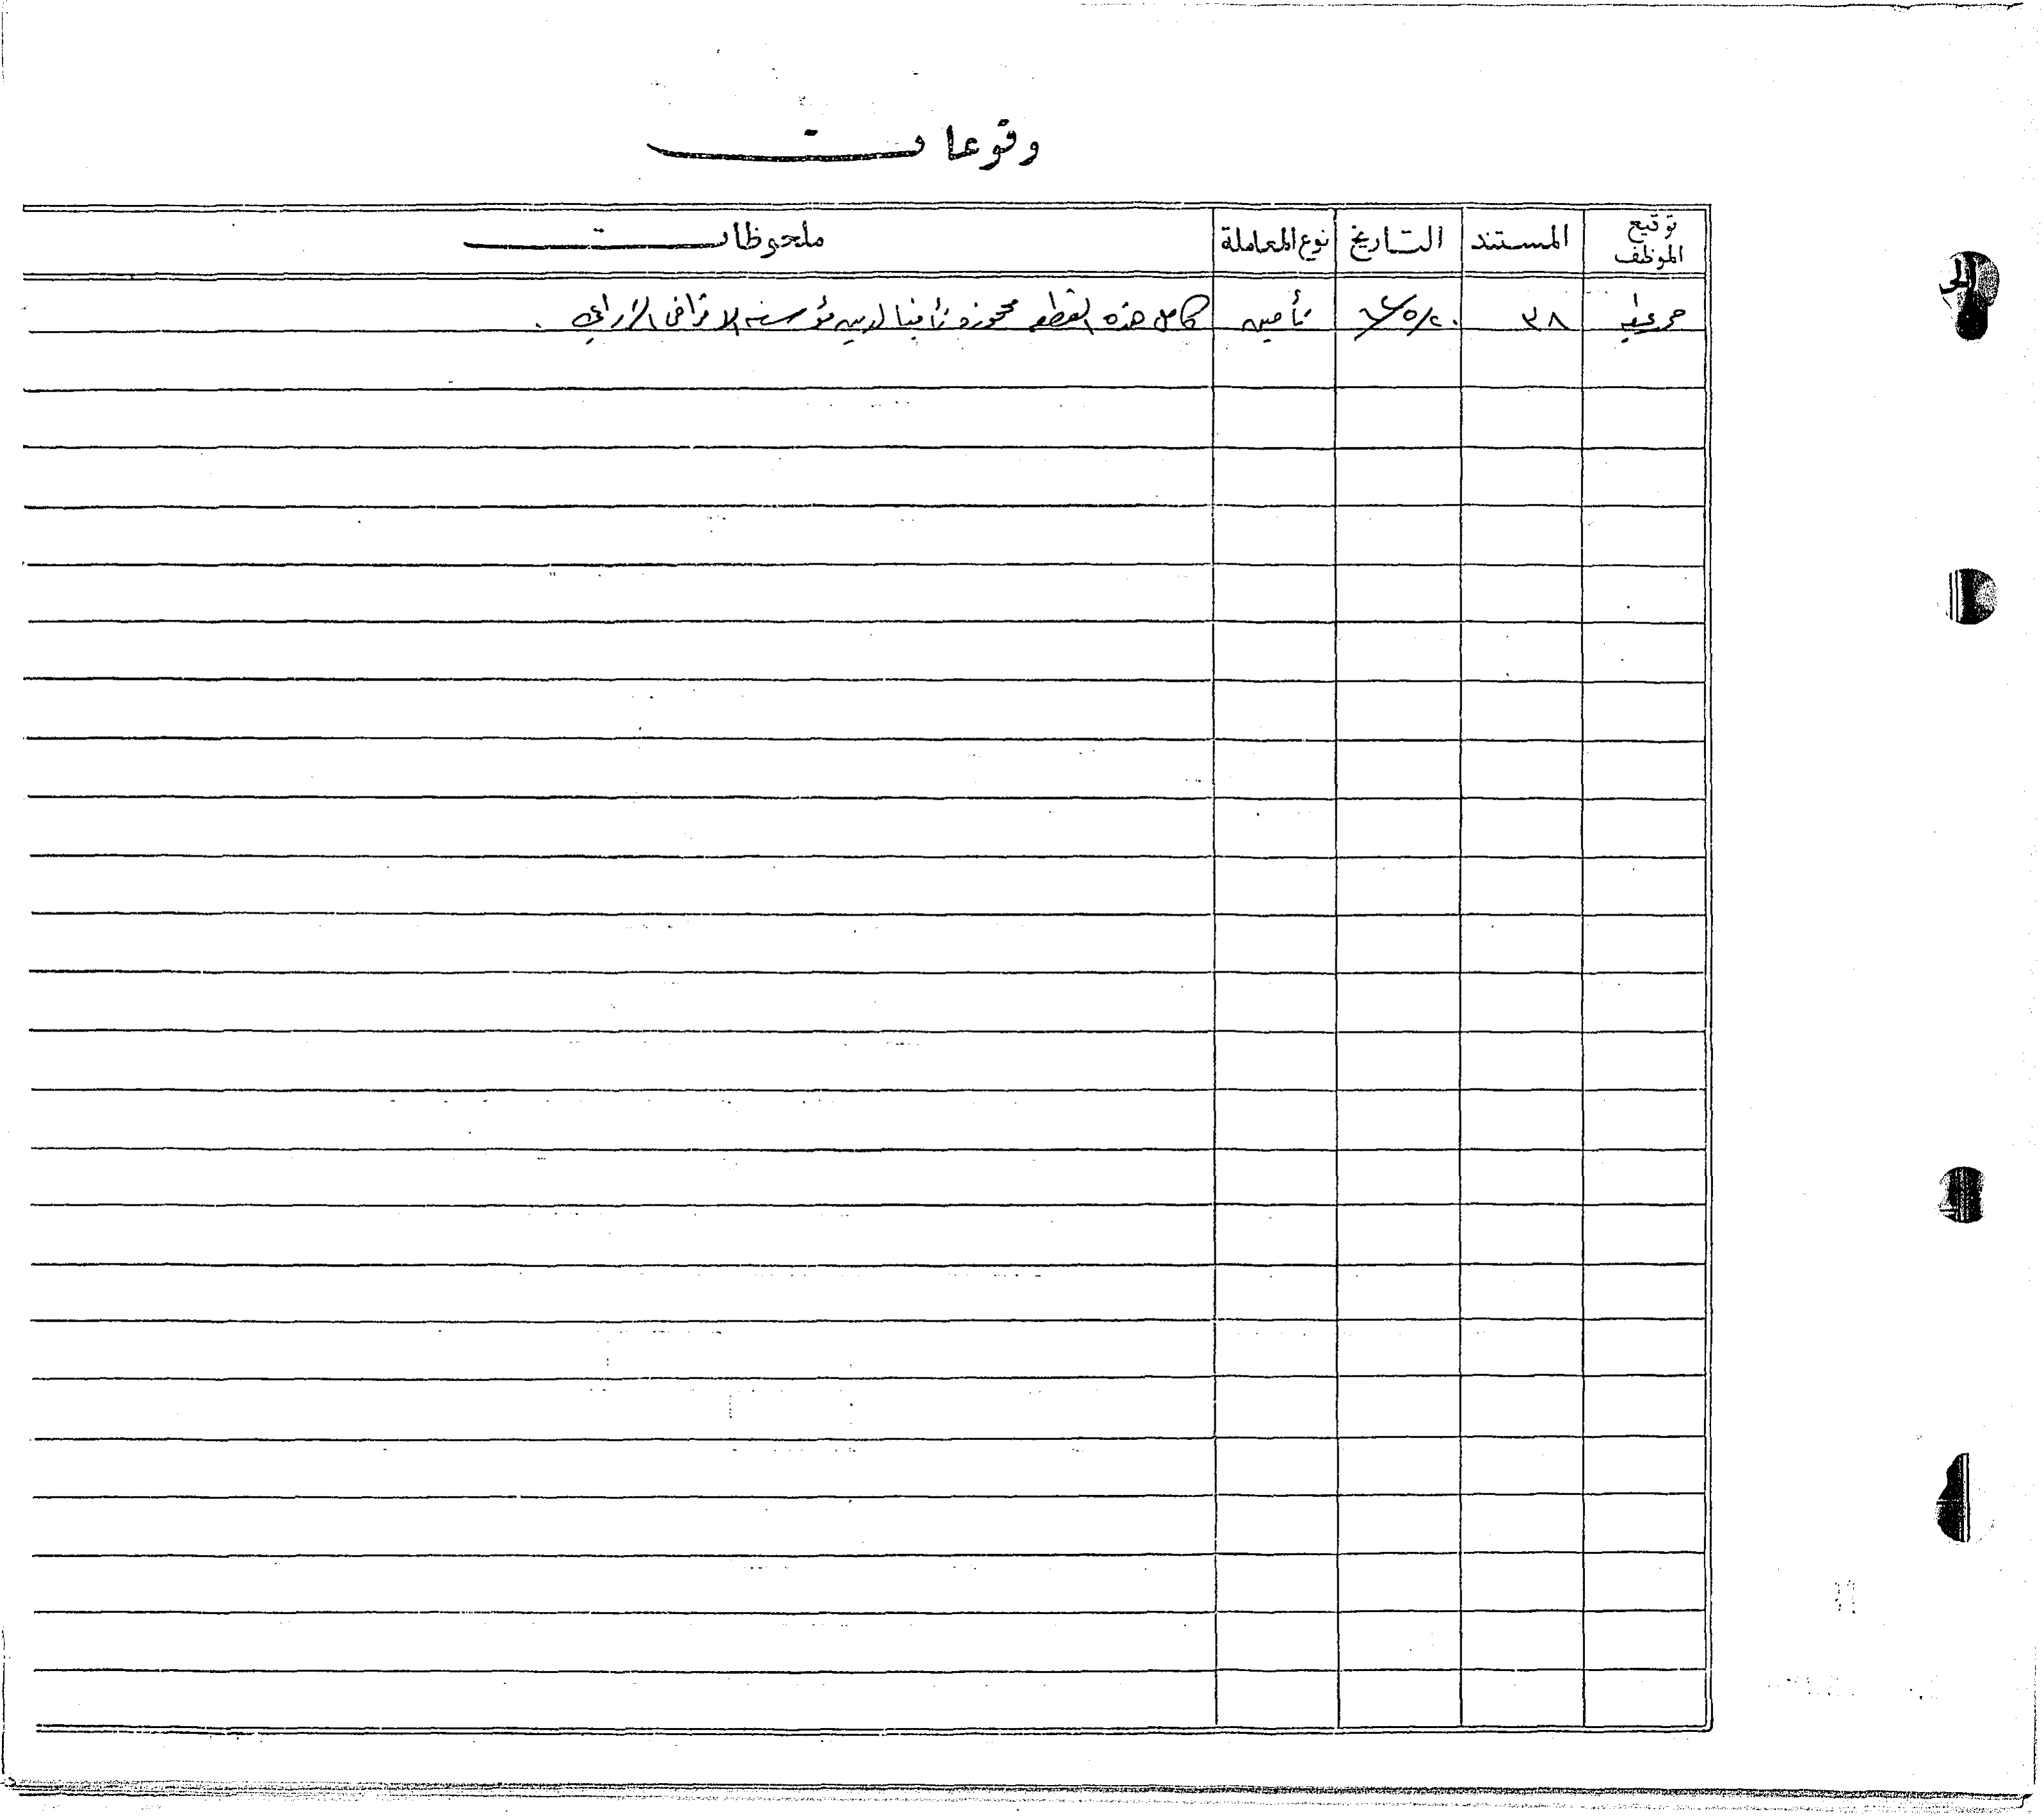 وقوعات
توقيع الموظف المستند التاريخ نوع المعاملة ملحوظات
٣٨ تأمين كامل هذه القطعه محجوزه تأمينا لدين مؤسسة الاقراض الزراعي .